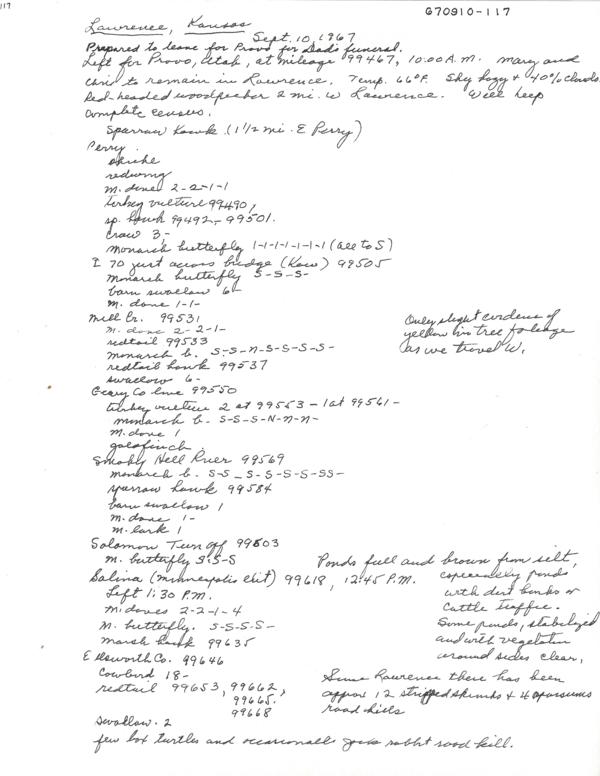 117
G70910-117
Lawrence, Kansas
Sept. 10, 1967
Prepared to leave for Provo for Dad's funeral.
Left for Provo, Utah, at mileage 99467, 10:00 A.M. Mary and
Chris to remain in Lawrence. Temp. 66°F. Sky hazy + 40% clouds
Red-headed woodpecker 2 mi. W Lawrence. Will keep
complete census.
Sparrow hawk (1 1/2 mi. E Perry)
Perry.
shrike
redwing
m. dove 2-2-1-1
turkey vulture 99490,
sp. hawk 99492, - 99501.
crow 3,
monarch butterfly 1-1-1-1-1-1 (all to S)
I 70 just across bridge (Kaw) 99505
monarch butterfly S-S-S-
barn swallow 6-
m. dove 1-1-
Mill Cr. 99531
m. dove 2-2-1-
redtail 99533
monarch b. S-S-N-S-S-S-S-
redtail hawk 99537
swallow 6-
Only slight evidence of
yellow in tree foliage
as we travel W.
Geary Co line 99550
turkey vulture 2 at 99553 - 1 at 99561 -
monarch b. S-S-S-N-N-N-
m. dove 1
goldfinch
Smoky Hill River 99569
monarch b. S-S-S-S-S-S-SS-
sparrow hawk 99584
barn swallow 1
m. dove 1-
m. lark 1
Solomon Turn off 99603
m. butterfly S-S-S
Salina (Minneapolis exit) 99618, 12:45 P.M.
Left 1:30 P.M.
M. doves 2-2-1-4
M. butterfly. S-S-S-S-
marsh hawk 99635
Ponds full and brown from silt,
especially ponds
with dirt banks or
cattle traffic.
Some ponds, stabilized
and with vegetation
around sides clear.
Ellsworth Co. 99646
Cowbird 18-
redtail 99653, 99662,
99665.
99668
swallow. 2
Since Lawrence there has been
approx 12 striped skunks + 4 opossums
road kills
few box turtles and occasional rabbit road kill.